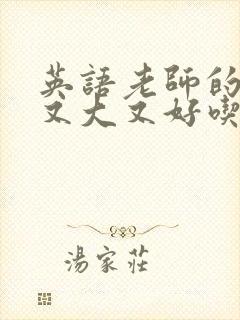 英語老師的
又大又好喫
湯家莊